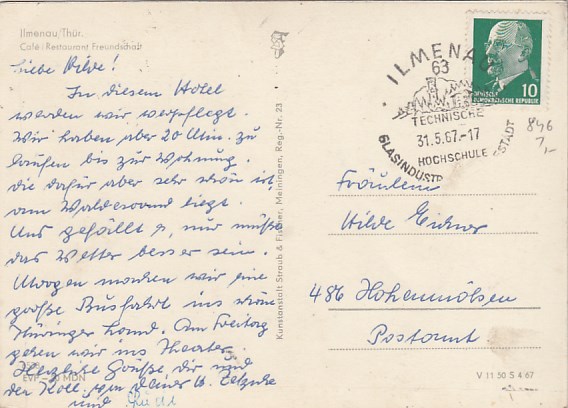 Ilmenau/Thür.
Café-Restaurant Freundschaft
Liebe Hilde!
In diesem Hotel
werden wir verpflegt.
Wir haben aber 20 Min. zu
laufen bis zur Wohnung,
die dafür aber sehr schön ist
am Waldesrand liegt.
Uns gefällt's, nur müßte
das Wetter besser sein.
Morgen machen wir eine
große Busfahrt ins schöne
Thüringer Land. Am Freitag
gehen wir ins Theater.
Herzliche Grüße dir und
den Koll. von deiner
und
EVP MDN
Kunstanstalt Straub & Fischer, Meiningen, Reg.-Nr. 23
ILMENAU
63
TECHNISCHE
31.5.67.-17
HOCHSCHULE
GLASINDUSTR
STADT
10
DEUTSCHE
DEMOKRATISCHE REPUBLIK
846
7,-
Fräulein
Hilde
486 Hohenmölsen
Postamt
V 11 50 S 4 67